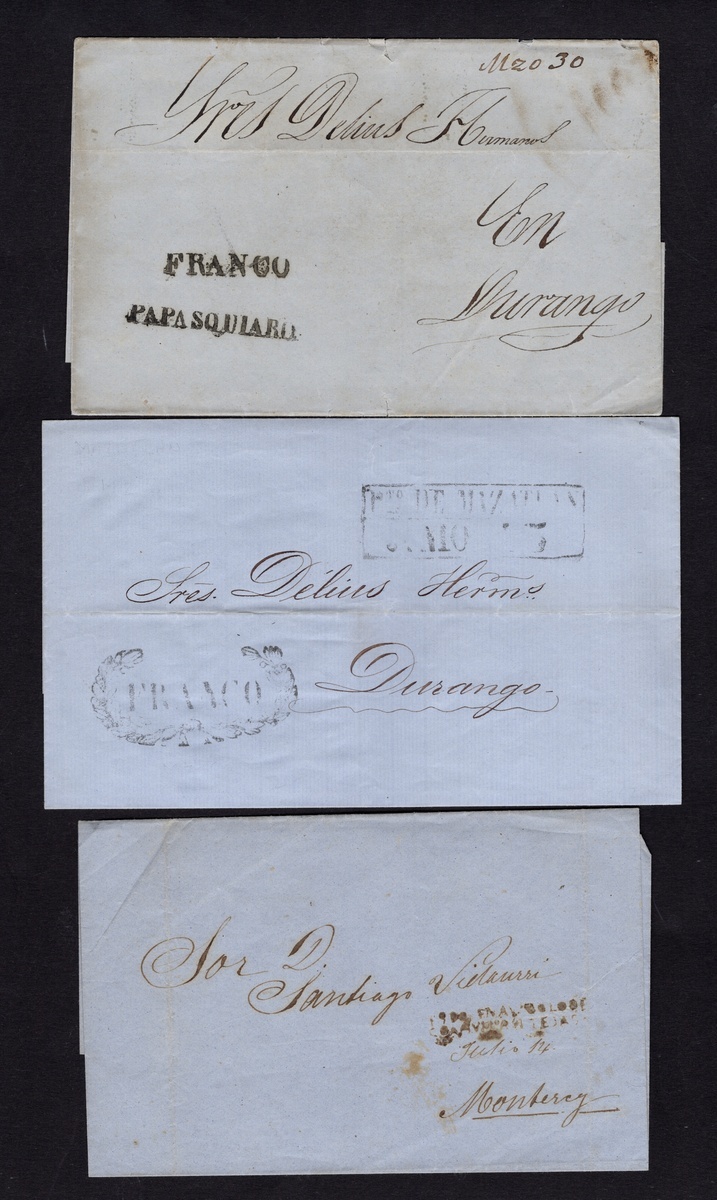 Mzo 30
Sres Delius Hermanos
En
Durango
FRANCO
PAPASQUIARO.
DE MAZATLAN
Sres. Délius Hermos.
FRANCO
Durango.
Sor D.
Santiago Vidaurri
Julio 14
Monterey